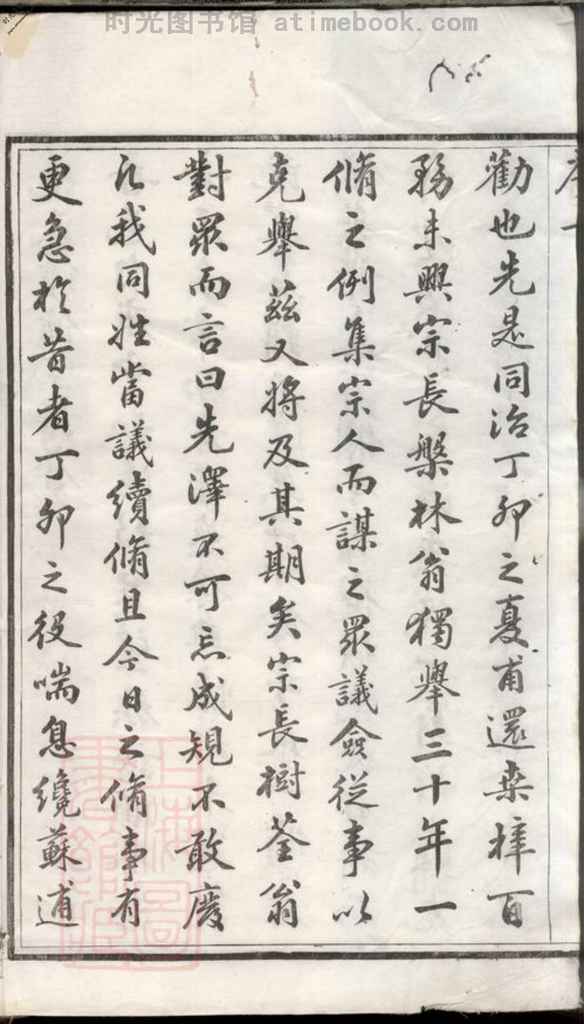 时光图书馆 atimebook.com
勸也先是同治丁卯之夏甫還桒梓百
務未興宗長槃林翁獨舉三十年一
脩之例集宗人而謀之眾議僉從事以
克舉茲又將及其期矣宗長樹荃翁
對眾而言曰先澤不可忘成規不敢廢
凡我同姓當議續脩且今日之脩事有
更急於昔者丁卯之役喘息纔蘇逋